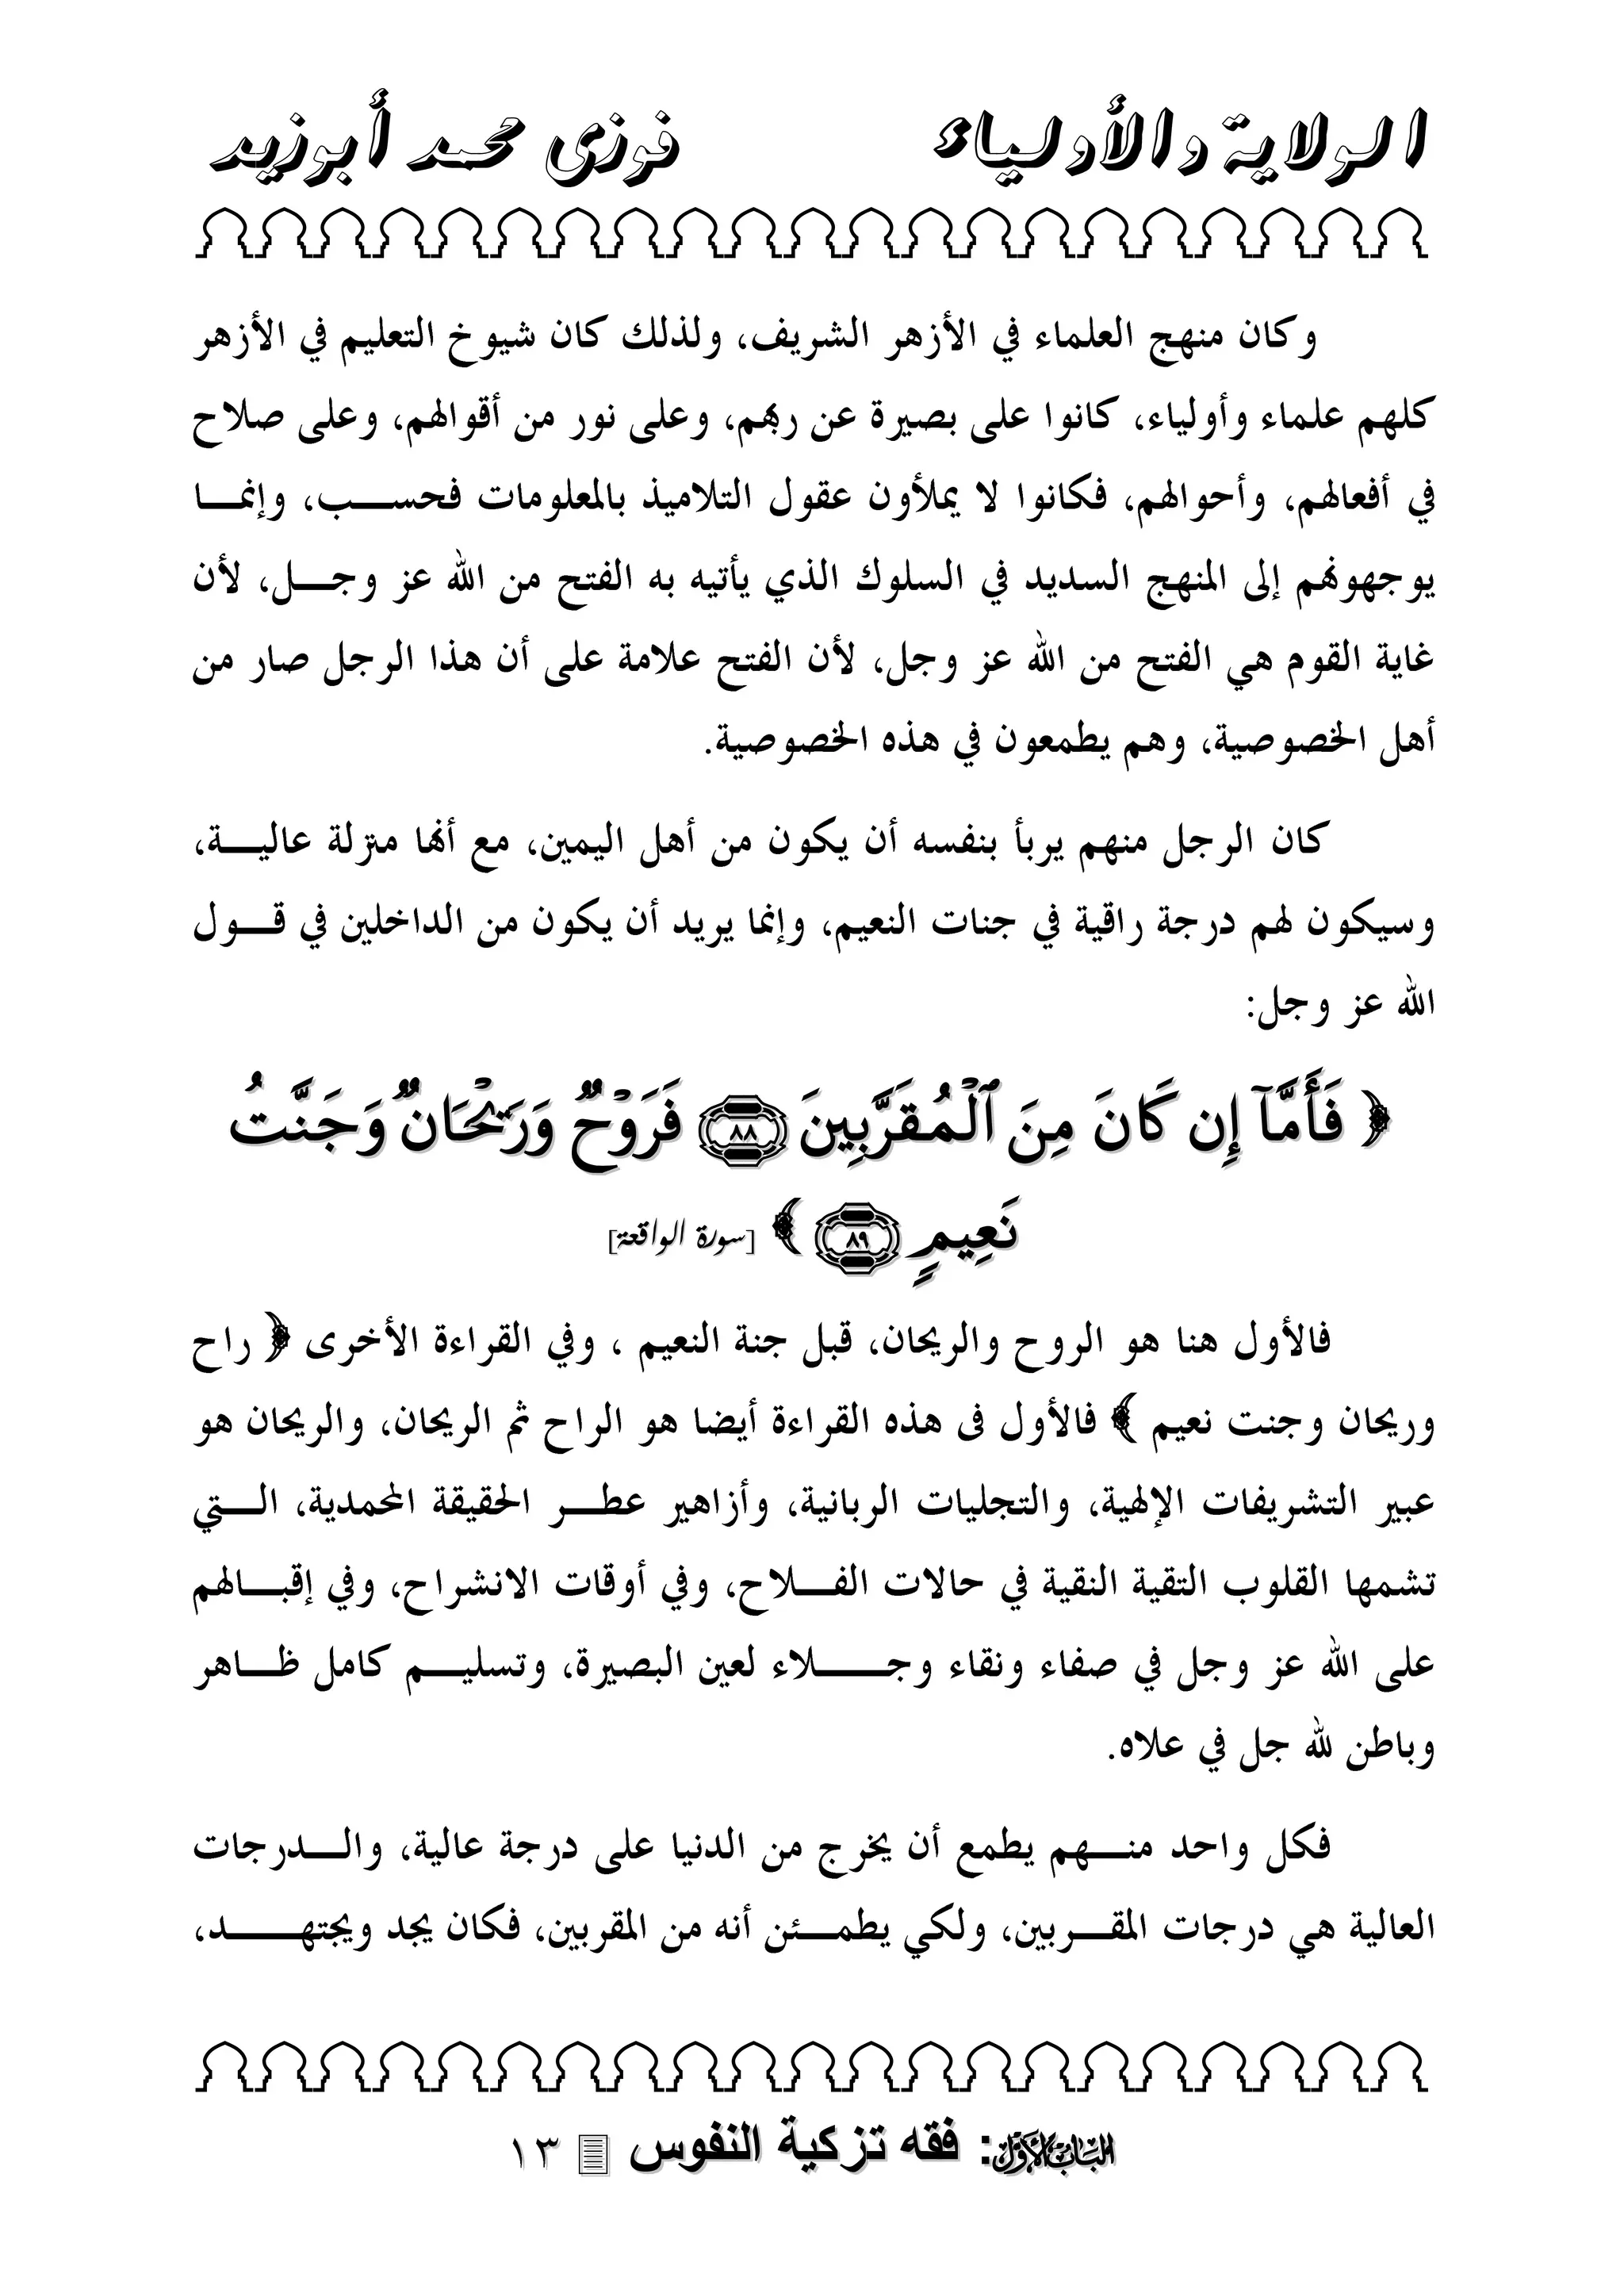 الولاية والأولياء فوزى محمد أبوزيد
وكان منهج العلماء في الأزهر الشريف، ولذلك كان شيوخ التعليم في الأزهر
كلهم علماء وأولياء، كانوا على بصيرة عن ربهم، وعلى نور من أقوالهم، وعلى صلاح
في أفعالهم، وأحوالهم، فكانوا لا يملأون عقول التلاميذ بالمعلومات فحسب، وإنما
يوجهونهم إلى المنهج السديد في السلوك الذي يأتيه به الفتح من الله عز وجل، لأن
غاية القوم هي الفتح من الله عز وجل، لأن الفتح علامة على أن هذا الرجل صار من
أهل الخصوصية، وهم يطمعون في هذه الخصوصية.
كان الرجل منهم يربأ بنفسه أن يكون من أهل اليمين، مع أنها منزلة عالية،
وسيكون لهم درجة راقية في جنات النعيم، وإنما يريد أن يكون من الداخلين في قول
الله عز وجل:
﴿ فَأَمَّآ إِن كَانَ مِنَ ٱلْمُقَرَّبِينَ ٨٨ فَرَوْحٌ وَرَيْحَانٌ وَجَنَّتُ
نَعِيمٍ ٨٩ ﴾ [سورة الواقعة]
فالأول هنا هو الروح والريحان، قبل جنة النعيم ، وفي القراءة الأخرى ﴿ راح
وريحان وجنت نعيم ﴾ فالأول فى هذه القراءة أيضا هو الراح ثم الريحان، والريحان هو
عبير التشريفات الإلهية، والتجليات الربانية، وأزاهير عطر الحقيقة المحمدية، التي
تشمها القلوب التقية النقية في حالات الفلاح، وفي أوقات الانشراح، وفي إقبالهم
على الله عز وجل في صفاء ونقاء وجلاء لعين البصيرة، وتسليم كامل ظاهر
وباطن لله جل في علاه.
فكل واحد منهم يطمع أن يخرج من الدنيا على درجة عالية، والدرجات
العالية هي درجات المقربين، ولكي يطمئن أنه من المقربين، فكان يجد ويجتهد،
الباب الأول: فقه تزكية النفوس ١٣